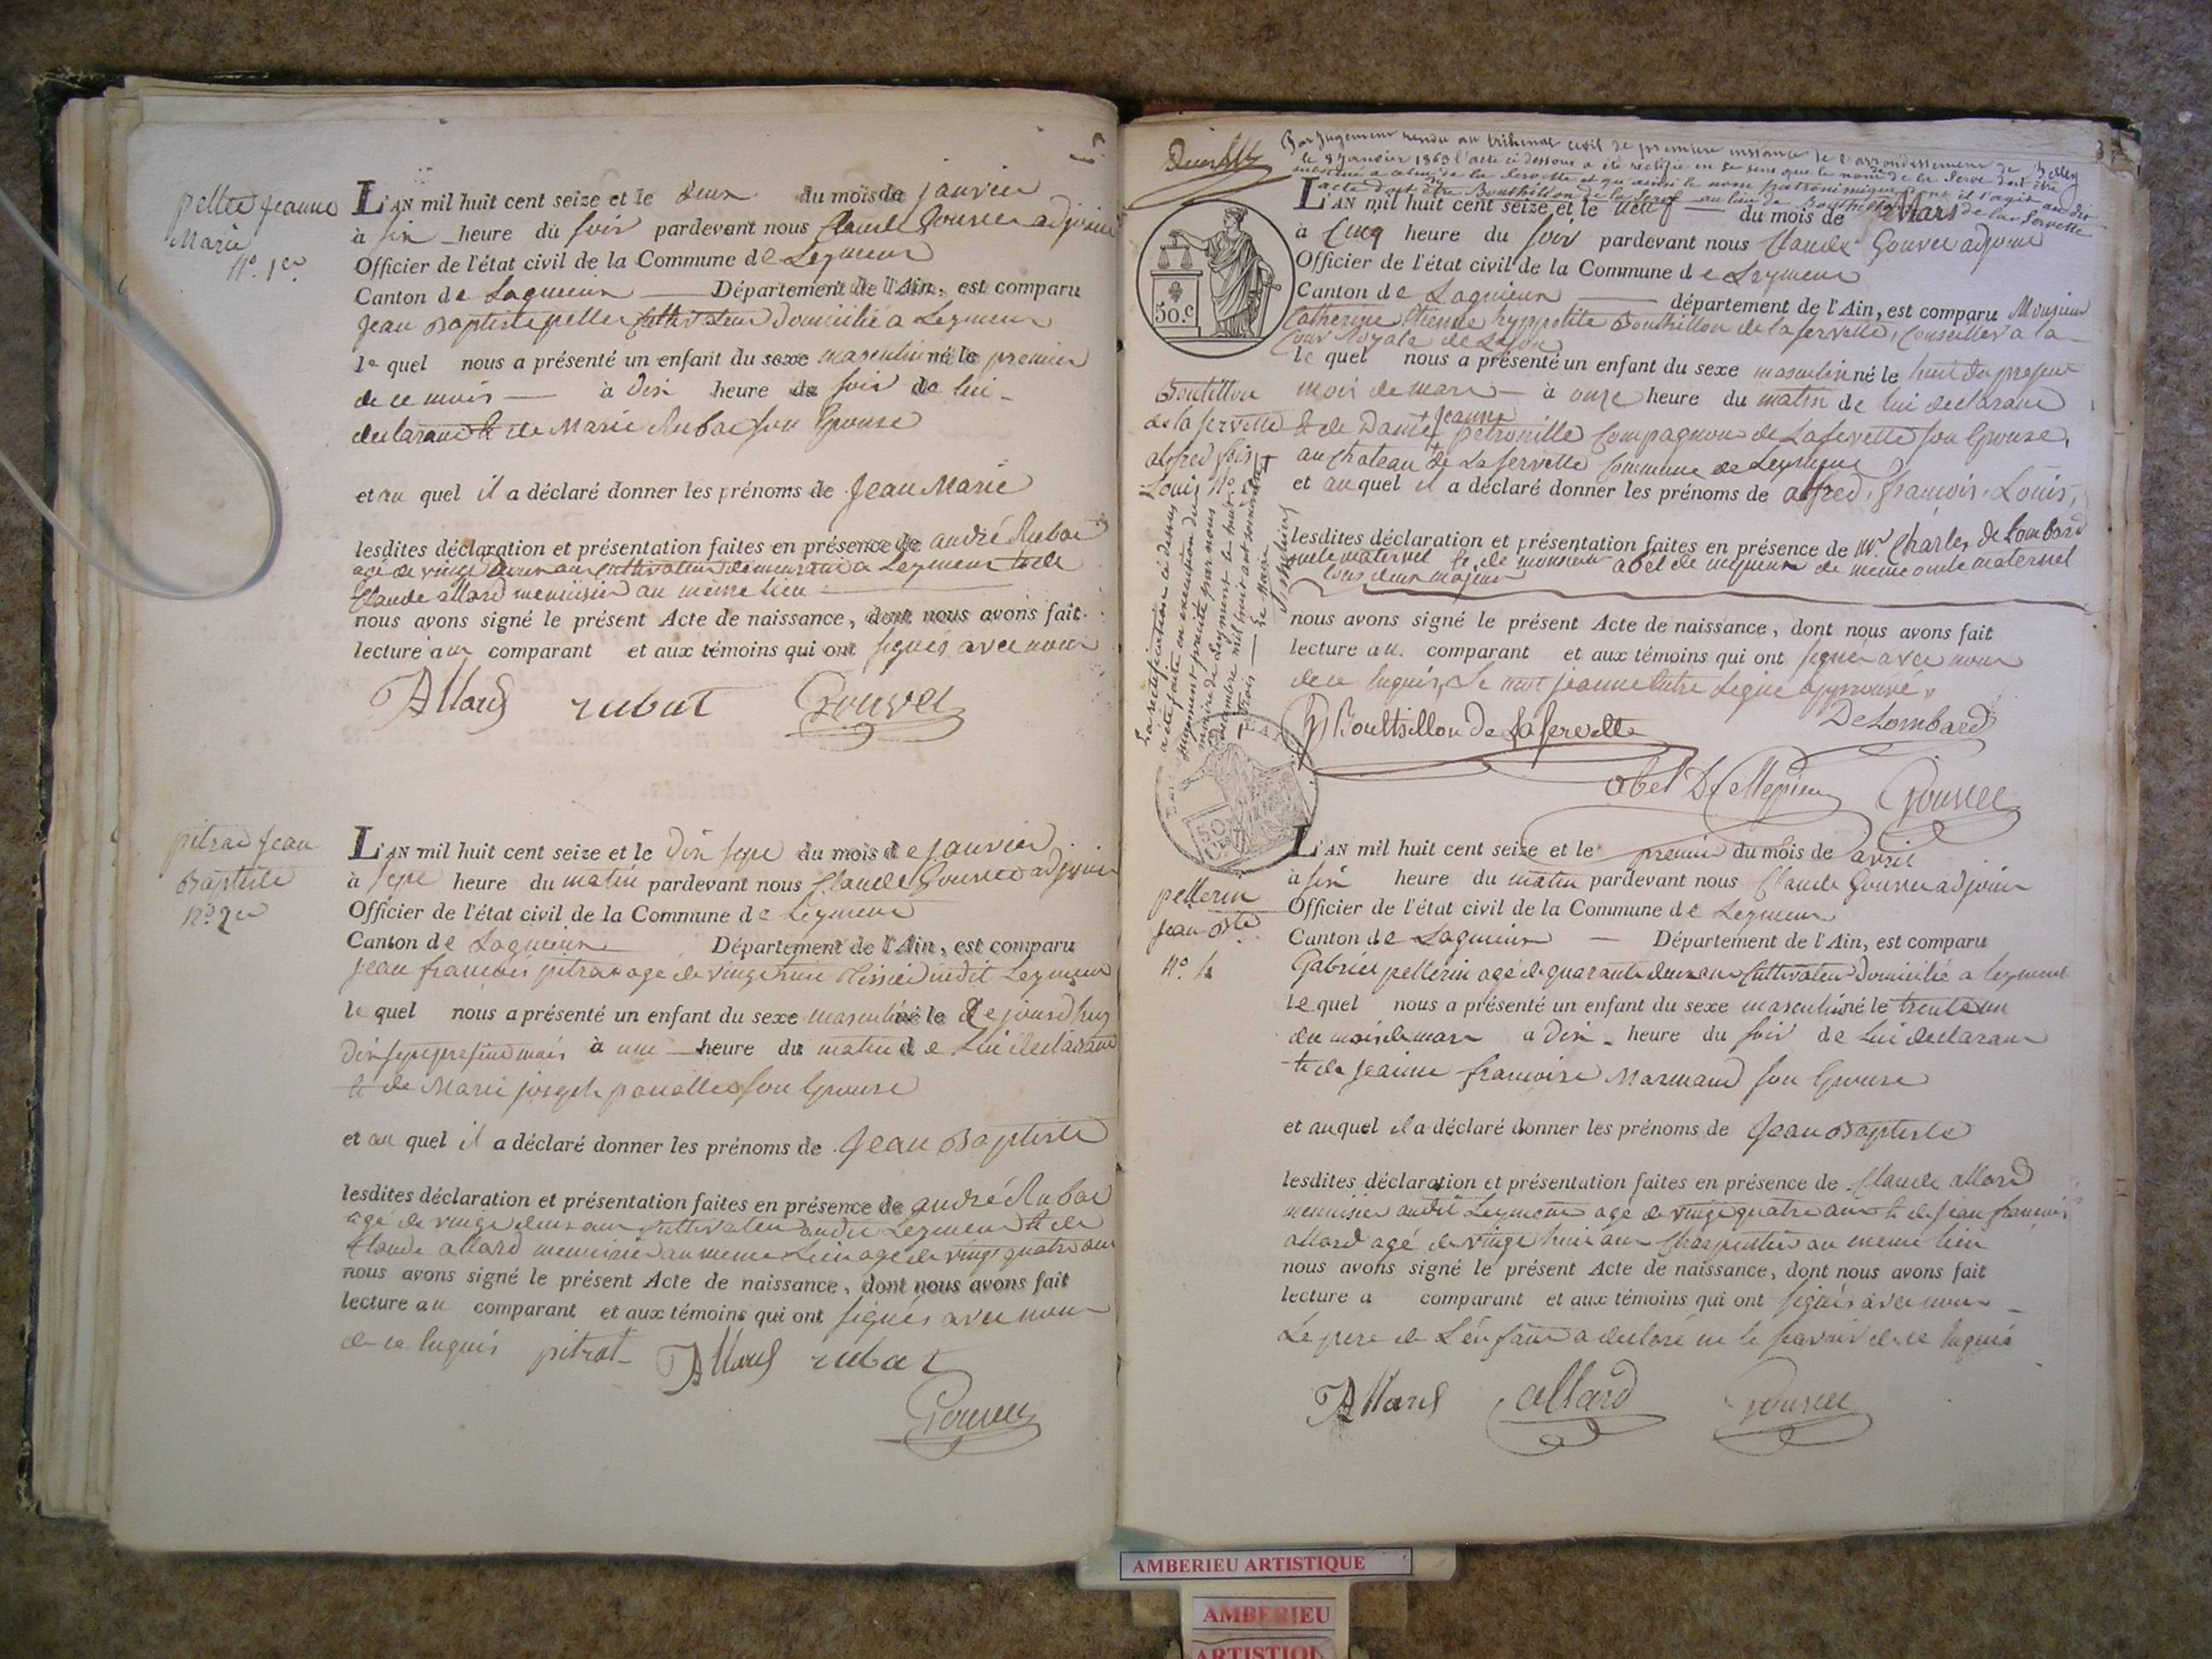 pellet Jeanne
Marie
N.º 1er
L'AN mil huit cent seize et le deux du mois de janvier
à six heure du soir pardevant nous Claude Gouvet adjoint
Officier de l'état civil de la Commune de Leyment
Canton de Lagnieux Département de l'Ain, est comparu
Jean Baptiste pellet Cultivateur domicilié a Leyment
le quel nous a présenté un enfant du sexe masculin né le premier
de ce mois à dix heure du soir de lui
declarant et de Marie Rubat son Epouse
et au quel il a déclaré donner les prénoms de Jean Marie
lesdites déclaration et présentation faites en présence de andré Rubat
agé de vingt deux ans Cultivateur demeurant a Leyment et de
Claude allard menuisier au même lieu
nous avons signé le présent Acte de naissance, dont nous avons fait
lecture aux comparant et aux témoins qui ont signés avec nous
Allard rubat Gouvet
pitrat Jean
Baptiste
N.º 2e
L'AN mil huit cent seize et le dix sept du mois de janvier
à sept heure du matin pardevant nous Claude Gouvet adjoint
Officier de l'état civil de la Commune de Leyment
Canton de Lagnieux Département de l'Ain, est comparu
Jean francois pitrat agé de vingt huit Tissier audit Leyment
le quel nous a présenté un enfant du sexe masculin né le Ce jourd'huy
dix sept present mois à une heure du matin de Lui declarant
et de Marie joseph son Epouse
et au quel il a déclaré donner les prénoms de Jean Baptiste
lesdites déclaration et présentation faites en présence de andré Rubat
agé de vingt deux ans Cultivateur audit Leyment et de
Claude allard menuisier au meme Lieu agé de vingt quatre ans
nous avons signé le présent Acte de naissance, dont nous avons fait
lecture au comparant et aux témoins qui ont signés avec nous
de ce Enquis pitrat Allard rubat
Gouvet
Par Jugement rendu au tribunal civil de premiere instance de l'arrondissement de Belley
le 8 Janvier 1863 l'acte ci dessous a été rectifié en ce sens que le nom de de la Serve doit être
substitué a celui de de la Servette et qu'ainsi le nom patronimique dont il s'agit au dit
acte doit être Bouthillon de la Serve au lieu de Bouthillon de la Servette
50.c
L'AN mil huit cent seize et le neuf du mois de Mars
à Cinq heure du soir pardevant nous Claude Gouvet adjoint
Officier de l'état civil de la Commune de Leyment
Canton de Lagnieux département de l'Ain, est comparu Monsieur
Catherine Etienne hyppolite Bouthillon de la servette, Conseiller a la
Cour Royale de Lyon
le quel nous a présenté un enfant du sexe masculin né le huit du present
mois de mars à onze heure du matin de lui declarant
et de Dame Jeanne petronille Compagnon de Laservette son Epouse,
au chateau de Laservette Commune de Leyment
et au quel il a déclaré donner les prénoms de alfred, françois, Louis,
Boutillon
de la servette
alfred fois
Louis N.º 3
La rectification ci dessus
a été faite en execution du
Jugement précité par nous
maire de Leyment le huit
mil huit cent soixante
trois Le Maire
lesdites déclaration et présentation faites en présence de Mr. Charles de Lombard
oncle maternel et de monsieur abel de mepieux de meme oncle maternel
tous deux majeurs
nous avons signé le présent Acte de naissance, dont nous avons fait
lecture au comparant et aux témoins qui ont signés avec nous
de ce Enquis, le mot jeanne Entre Ligne approuvé,
Bouthillon de Laservette DeLombard
abel De Mepieux Gouvet
pellerin
jean Bte
N.º 4
L'AN mil huit cent seize et le premier du mois de avril
à six heure du matin pardevant nous Claude Gouvet adjoint
Officier de l'état civil de la Commune de Leyment
Canton de Lagnieux Département de l'Ain, est comparu
Gabriel pellerin agé de quarante deux ans Cultivateur domicilié a Leyment
le quel nous a présenté un enfant du sexe masculin né le trente un
du mois de mars a Dix heure du soir de Lui declarant
et de jeanne francoise Marmand son Epouse
et auquel il a déclaré donner les prénoms de Jean Baptiste
lesdites déclaration et présentation faites en présence de Claude allard
menuisier audit Leyment agé de vingt quatre ans et de jean francois
allard agé de vingt huit ans Charpentier au meme lieu
nous avons signé le présent Acte de naissance, dont nous avons fait
lecture a comparant et aux témoins qui ont signés avec nous
Le pere de L'enfant a declaré ne le scavoir de ce Enquis
Allard allard Gouvet
AMBERIEU ARTISTIQUE
AMBERIEU
ARTISTIQUE